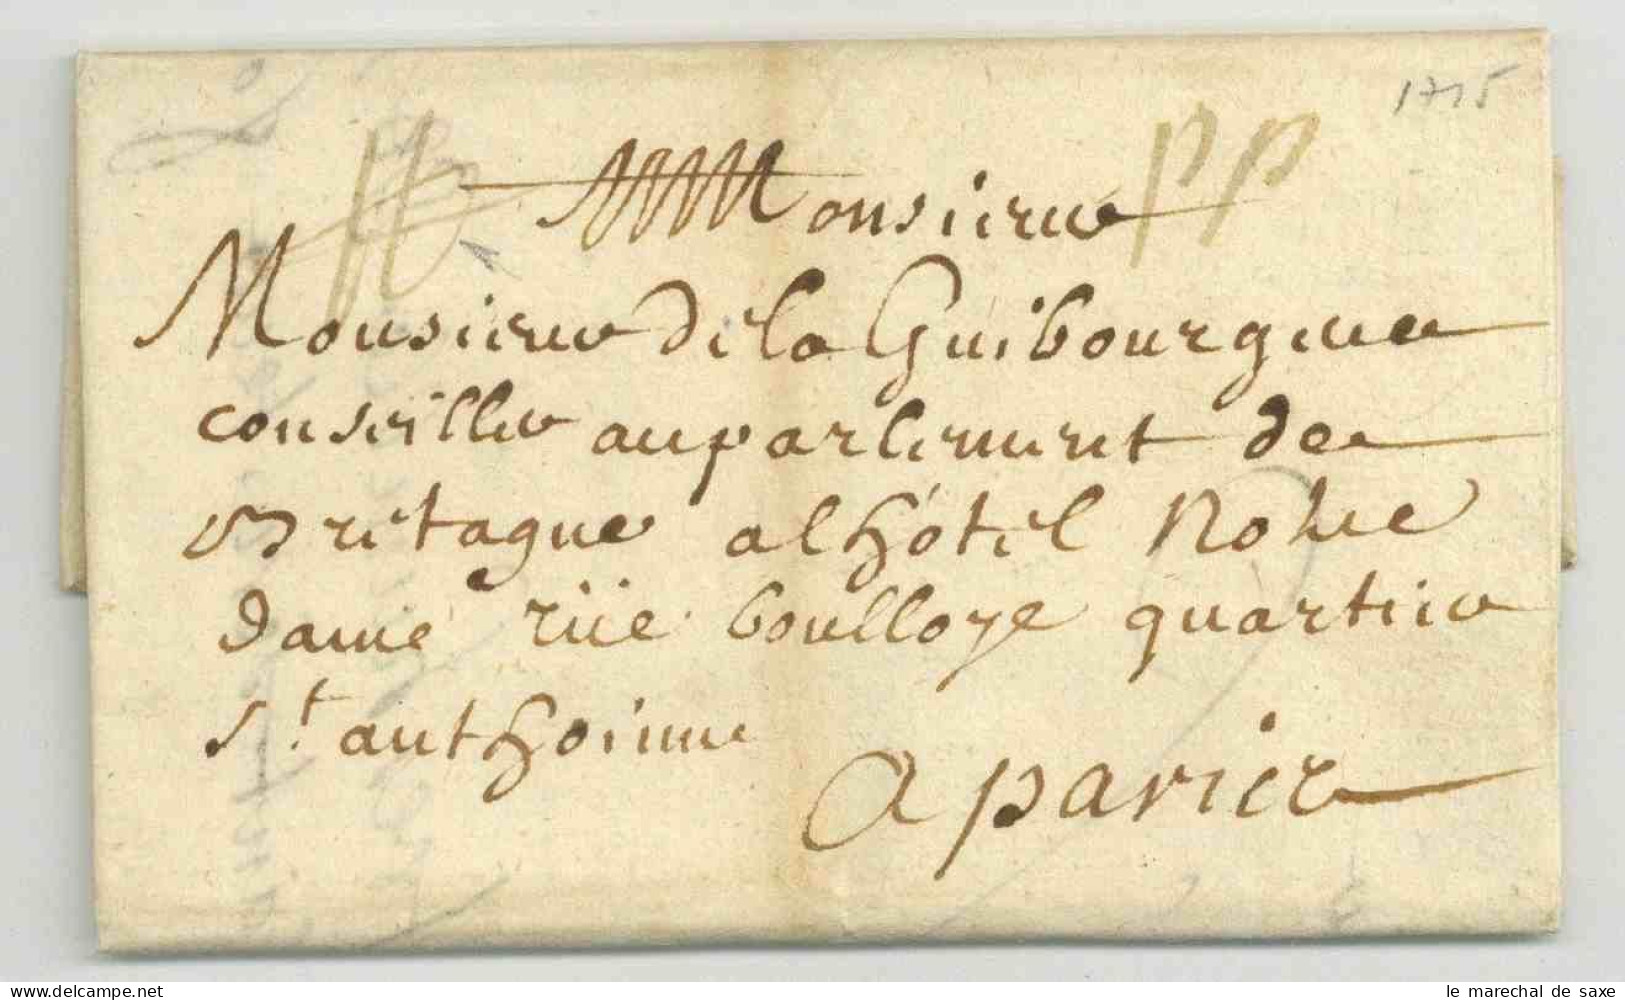 1715
pp
Monsieur
Monsieur de la Guibourgere
conseiller au parlement de
Bretagne a l hótel Notre
dame rüe boulloye quartier
St. anthoinne
A paris
delcampe.net
le marechal de saxe